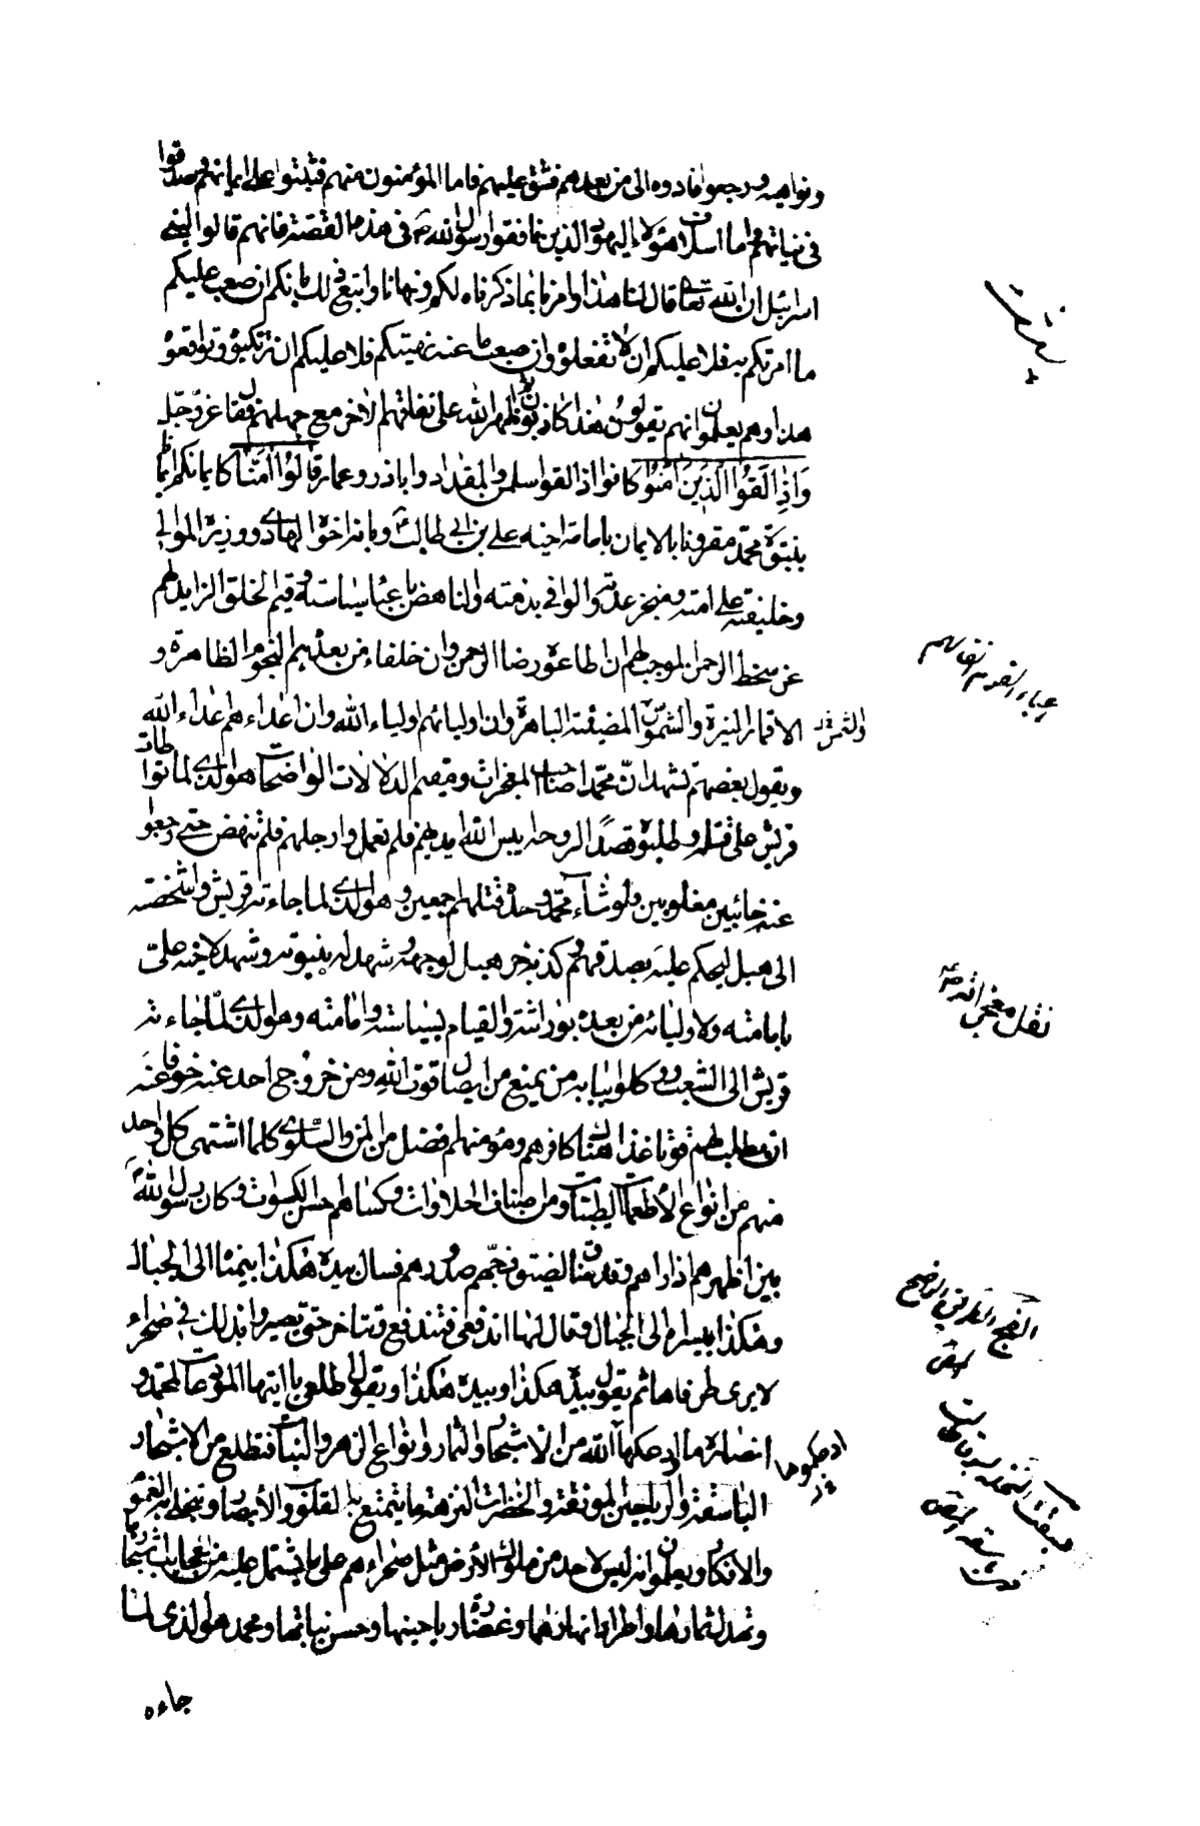 ونواهيه ورجعوا فادوه الى من بعدهم فشق عليهم فاما المؤمنون منهم فثبتوا على ايمانهم وصدقوا
في نياتهم واما اسلاف هؤلاء اليهود الذين نافقوا رسول الله ص في هذه القصة فانهم قالوا لبني
اسرائيل ان الله تعالى قال لنا هذا وامرنا بما ذكرناه لكم ونهانا واتبع ذلك بانكم ان صعب عليكم
ما امرتكم به فلا عليكم ان لا تفعلوه وان صعب ما عنه نهيتكم فلا عليكم ان ترتكبوه وتواقعوه
هذا وهم يعلمون انهم بقولهم هذا كاذبون ثم اظهر الله على نفاقهم الاخر مع جهلهم فقال عز وجل
وَاذِا لَقُوا الَّذِينَ آمَنُوا كانوا اذا لقوا سلمن والمقداد واباذر وعمار قالُوا آمَنَّا كايمانكم ايمانا
بنبوة محمد مقرونا بالايمان بامامة اخيه علي بن ابي طالب ع وبانه اخوه الهادي ووزيره الموالي
وخليفته على امته ومنجز عدته والوافي بذمته والناهض باعباء سياسته وقيم الخلق الزايد لهم
عن سخط الرحمن الموجب لهم ان اطاعوه رضا الرحمن وان خلفاءه من بعده هم النجوم الظاهرة و
الاقمار المنيرة والشموس المضيئة الباهرة وان اوليائهم اولياء الله وان اعداءهم اعداء الله
والشمس
ويقول بعضهم نشهد ان محمدا صاحب المعجزات ومقيم الدلالات الواضحات هو الذي لما تواطات
قريش على قتله وطلبوه فقصدا لروحه ايبس الله ايديهم فلم تعمل وارجلهم فلم تنهض حتى رجعوا
عنه خائبين مغلوبين ولو شاء محمد وحده قتلهم اجمعين وهو الذي لما جاءته قريش واشخصته
الى هبل ليحكم عليه بصدقهم وكذبه خر هبل لوجهه وشهد له بنبوته وشهد لاخيه علي
بامامته ولاوليائه من بعده بوراثته والقيام بسياسته وامامته وهو الذي لما جاءته
نقل معجزات النبي ص
قريش الى الشعب ووكلوا ببابه من يمنع من ايصال قوت اليه ومن خروج احد عنه خوفا عنه
ان يطلب لهم قوتا غذا هناك كافرهم ومؤمنهم افضل من المن والسلوى كلما اشتهى كل واحد
منهم من انواع الاطعمات الطيبات ومن اصناف الحلاوات وكساهم احسن الكسوات وكان رسول الله ص
بين اظهرهم اذا راهم وقد ضاق لضيق فجهم صدورهم فسال بيده هكذا بيمناه الى الجبال
الفج الطريق الواضح
وهكذا بيسراه الى الجبال وقال لها اندفعي فتندفع وتتاخر حتى يصيروا بذلك في صحراء
لا يرى طرفاها ثم يقول بيده هكذا وبيده هكذا ويقول اطلعي يا ايتها المودعات لمحمد و
انصاره ما اودعكها الله من الاشجار والثمار وانواع الزهر والنبات فتطلع من الاشجار
اودعكموها
الباسقة والرياحين المونقة والخضرات النزهة ما يتمتع به القلوب والابصار وتنجلي به الغموم
والافكار ويعلمون انه ليس لاحد من ملوك الارض مثل صحراءهم على ما يشتمل عليه من عجايب اشجارها
وتهدل ثمارها واطراد انهارها وغضارة رياحينها وحسن نباتها ومحمد هو الذي لما
جاءه